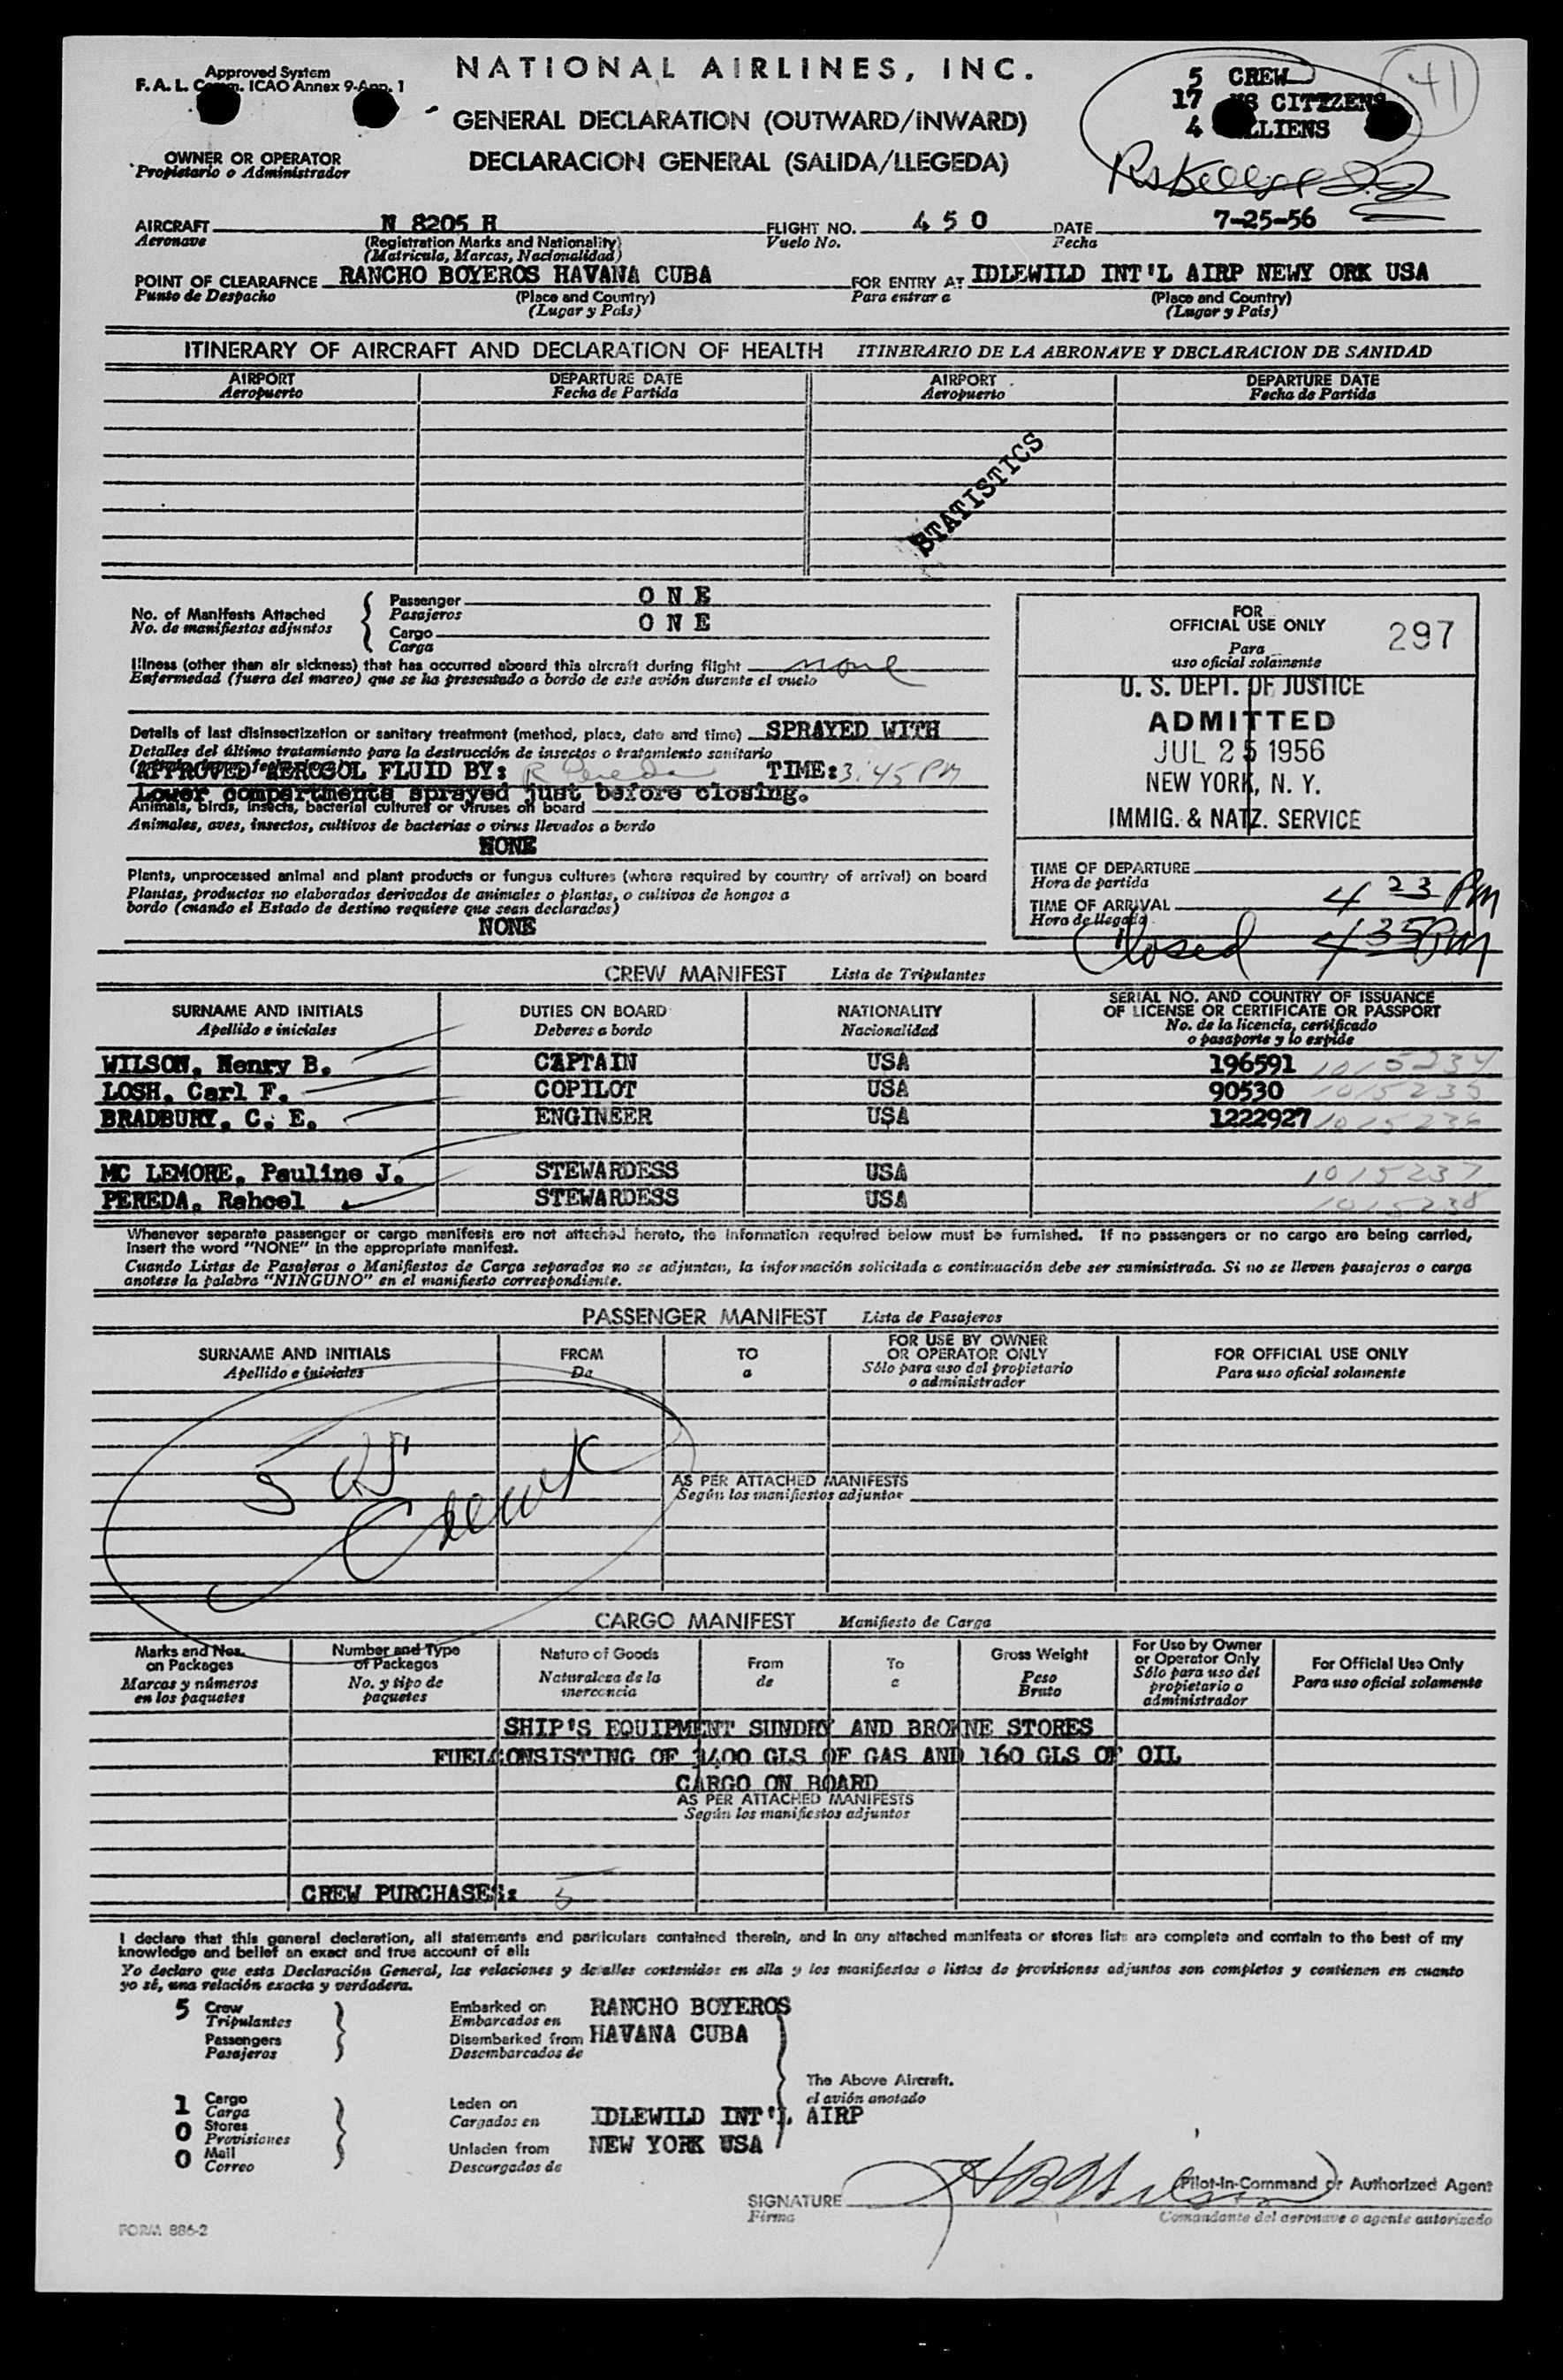 Approved System
F. A. L. Comm. ICAO Annex 9-App. 1
NATIONAL AIRLINES, INC.
5 CREW
17 US CITIZENS
4 ALLIENS
41
GENERAL DECLARATION (OUTWARD/INWARD)
DECLARACION GENERAL (SALIDA/LLEGEDA)
OWNER OR OPERATOR
Propietario o Administrador
AIRCRAFT N 8205 H FLIGHT NO. 4 5 0 DATE 7-25-56
Aeronave (Registration Marks and Nationality) Vuelo No. Fecha
(Matricula, Marcas, Nacionalidad)
POINT OF CLEARAFNCE RANCHO BOYEROS HAVANA CUBA FOR ENTRY AT IDLEWILD INT'L AIRP NEWY ORK USA
Punto de Despacho (Place and Country) Para entrar a (Place and Country)
(Lugar y Pais) (Lugar y Pais)
ITINERARY OF AIRCRAFT AND DECLARATION OF HEALTH ITINERARIO DE LA AERONAVE Y DECLARACION DE SANIDAD
AIRPORT DEPARTURE DATE AIRPORT DEPARTURE DATE
Aeropuerto Fecha de Partida Aeropuerto Fecha de Partida
STATISTICS
No. of Manifests Attached Passenger O N E
No. de manifiestos adjuntos Pasajeros
Cargo O N E
Carga
Illness (other than air sickness) that has occurred aboard this aircraft during flight none
Enfermedad (fuera del mareo) que se ha presentado a bordo de este avión durante el vuelo
Details of last disinsectization or sanitary treatment (method, place, date and time) SPRAYED WITH
Detalles del último tratamiento para la destrucción de insectos o tratamiento sanitario
APPROVED AEROSOL FLUID BY: R Pereda TIME: 3:45 PM
Lower compartments sprayed just before closing.
Animals, birds, insects, bacterial cultures or viruses on board
Animales, aves, insectos, cultivos de bacterias o virus llevados a bordo
NONE
Plants, unprocessed animal and plant products or fungus cultures (where required by country of arrival) on board
Plantas, productos no elaborados derivados de animales o plantas, o cultivos de hongos a
bordo (cuando el Estado de destino requiere que sean declarados)
NONE
FOR
OFFICIAL USE ONLY 297
Para
uso oficial solamente
U. S. DEPT. OF JUSTICE
ADMITTED
JUL 25 1956
NEW YORK, N. Y.
IMMIG. & NATZ. SERVICE
TIME OF DEPARTURE
Hora de partida
TIME OF ARRIVAL 4 23 PM
Hora de llegada
Closed 4 35 PM
CREW MANIFEST Lista de Tripulantes
SURNAME AND INITIALS DUTIES ON BOARD NATIONALITY SERIAL NO. AND COUNTRY OF ISSUANCE
OF LICENSE OR CERTIFICATE OR PASSPORT
Apellido e iniciales Deberes a bordo Nacionalidad No. de la licencia, certificado
o pasaporte y lo expide
WILSON, Henry B. CAPTAIN USA 196591 1015234
LOSH, Carl F. COPILOT USA 90530 1015235
BRADBURY, C. E. ENGINEER USA 1222927 1015236
MC LEMORE, Pauline J. STEWARDESS USA 1015237
PEREDA, Rahcel STEWARDESS USA 1015238
Whenever separate passenger or cargo manifests are not attached hereto, the information required below must be furnished. If no passengers or no cargo are being carried,
insert the word "NONE" in the appropriate manifest.
Cuando Listas de Pasajeros o Manifiestos de Carga separados no se adjuntan, la información solicitada a continuación debe ser suministrada. Si no se lleven pasajeros o carga
anotese la palabra "NINGUNO" en el manifiesto correspondiente.
PASSENGER MANIFEST Lista de Pasajeros
SURNAME AND INITIALS FROM TO FOR USE BY OWNER
OR OPERATOR ONLY FOR OFFICIAL USE ONLY
Apellido e iniciales De a Sólo para uso del propietario
o administrador Para uso oficial solamente
5 US
Crew
AS PER ATTACHED MANIFESTS
Según los manifiestos adjuntor
CARGO MANIFEST Manifiesto de Carga
Marks and Nos. on Packages Number and Type of Packages Nature of Goods From To Gross Weight For Use by Owner or Operator Only For Official Use Only
Marcas y números en los paquetes No. y tipo de paquetes Naturaleza de la mercancia de a Peso Bruto Sólo para uso del propietario o administrador Para uso oficial solamente
SHIP'S EQUIPMENT SUNDRY AND BROKNE STORES
FUEL CONSISTING OF 3400 GLS OF GAS AND 160 GLS OF OIL
CARGO ON BOARD
AS PER ATTACHED MANIFESTS
Según los manifiestos adjuntos
CREW PURCHASES: 5
I declare that this general declaration, all statements and particulars contained therein, and in any attached manifests or stores lists are complete and contain to the best of my
knowledge and belief an exact and true account of all:
Yo declaro que esta Declaración General, las relaciones y detalles contenidos en ella y los manifiestos o listas de provisiones adjuntos son completos y contienen en cuanto
yo sé, una relación exacta y verdadera.
5 Crew Embarked on RANCHO BOYEROS
Tripulantes Embarcados en
Passengers Disembarked from HAVANA CUBA
Pasajeros Desembarcados de
The Above Aircraft.
el avión anotado
1 Cargo Laden on
Carga Cargados en IDLEWILD INT'L AIRP
0 Stores
Provisiones
0 Mail Unladen from NEW YORK USA
Correo Descargados de
SIGNATURE HB Wilson (Pilot-in-Command or Authorized Agent
Firma Comandante del aeronave o agente autorizado
FORM 886-2